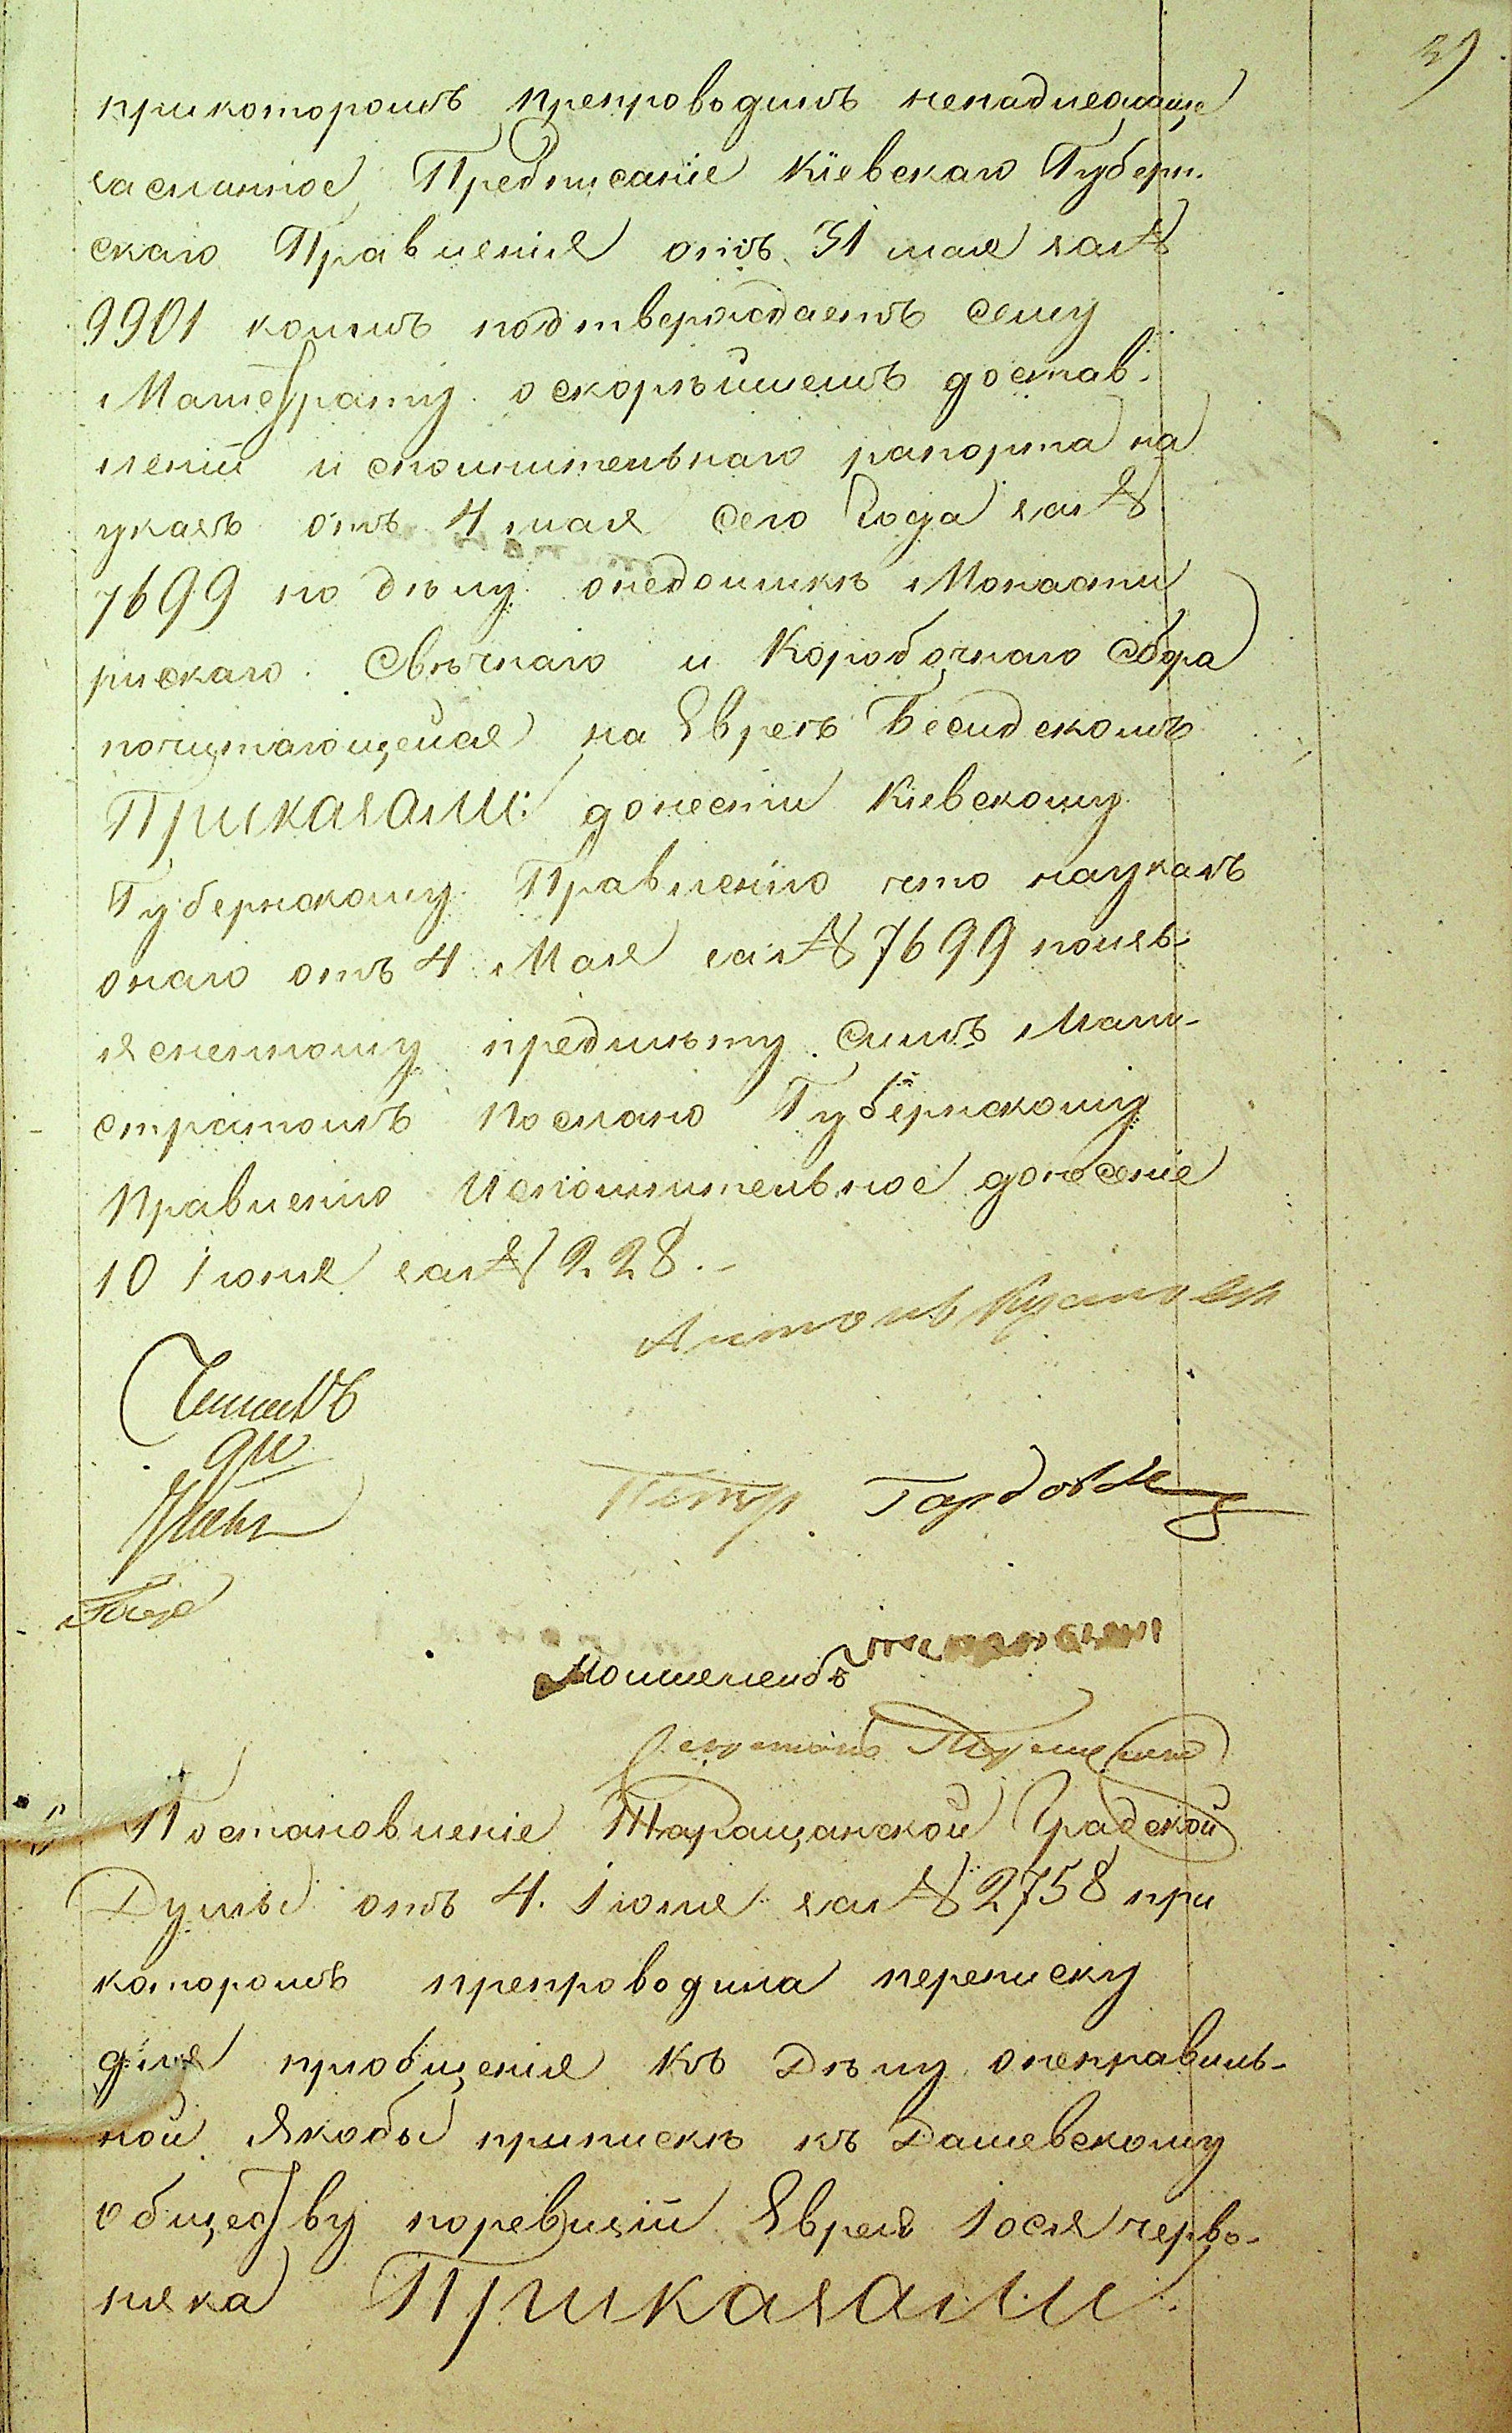 при которомъ препроводилъ ненадлежаще
засланное Предписаніе Кіевскаго Губерн.
скаго Правленія отъ 31 мая за №
9901 коимъ подтверждаетъ сему
Магистрату о скорѣйшемъ достав.
леніи исполнительнаго рапорта на
указъ отъ 4 мая сего года за №
7699 по дѣлу онедоимкѣ Монасты
рискаго Свѣчнаго и Коробочнаго Сбора
почитающейся на Евреѣ Бесидскомъ
Приказали: донести Кіевскому
Губернскому Правленію что на указъ
онаго отъ 4 Мая за № 7699 поизъ-
ясненному предмѣту симъ Маги-
стратомъ послано Губернскому
Правленію Исполнительное донесеніе
10 Іюня за № 228.-
Антонъ
Петр.
Постановленіе Таращанской Градской
Думы отъ 4. Іюня за № 2758 при
которомъ препроводила переписку
для пріобщенія къ Дѣлу онеправиль-
ной якобы припискѣ къ Дашевскому
обществу поревизіи Еврея Іося черво-
няка Приказали